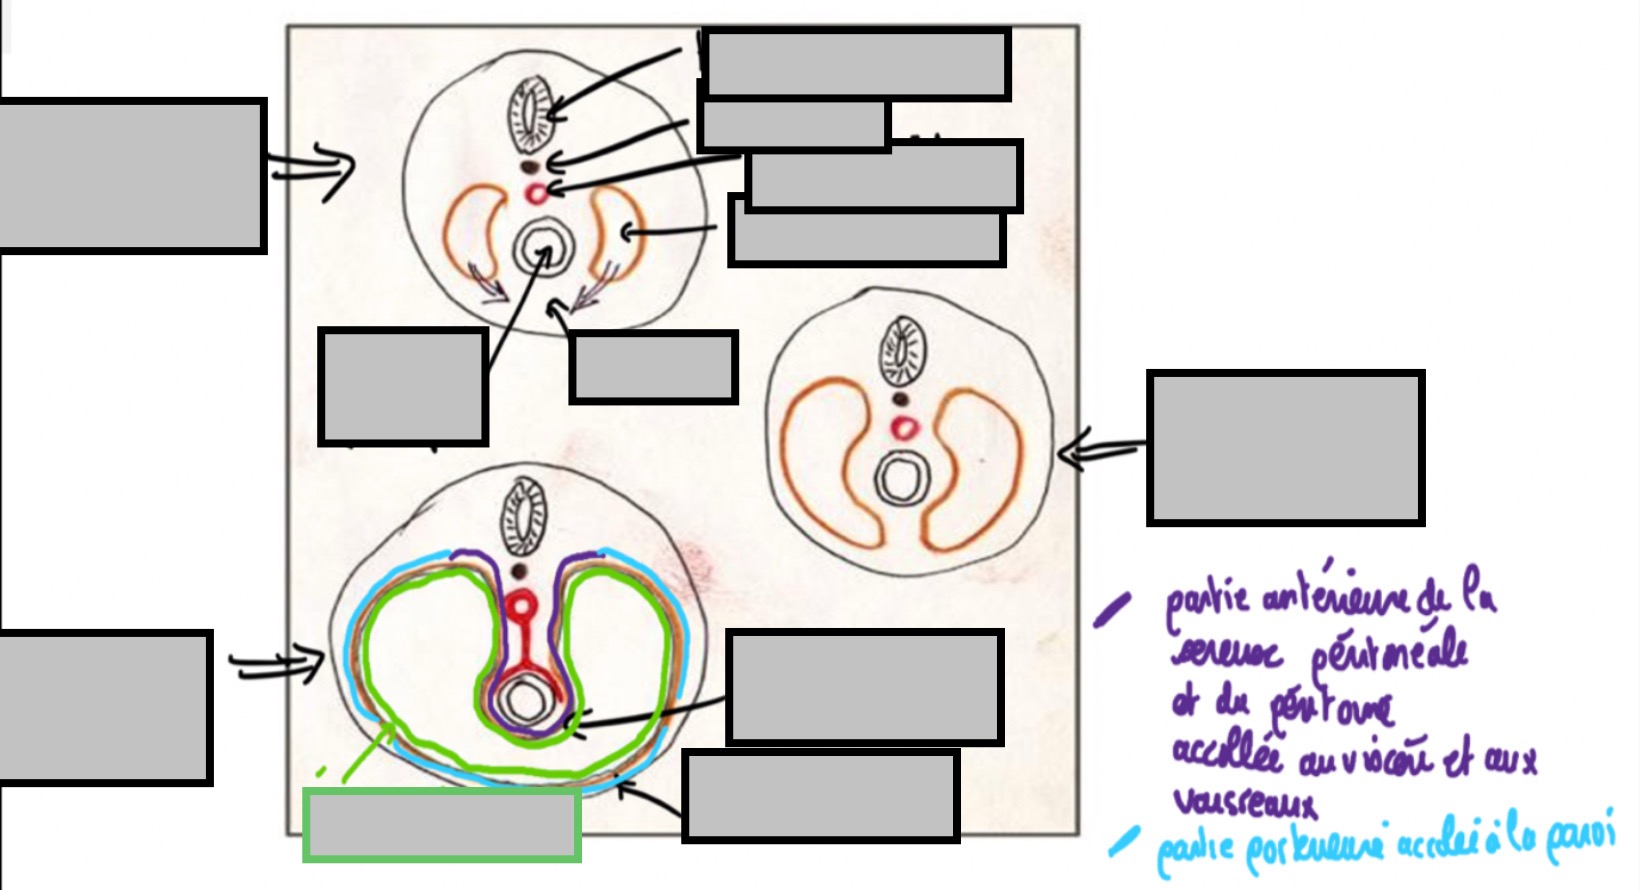 partie antérieure de la
sereuse péritonéale
et du péritoine
accollée au viscère et aux
vaisseaux
partie posterieure accolée à la paroi